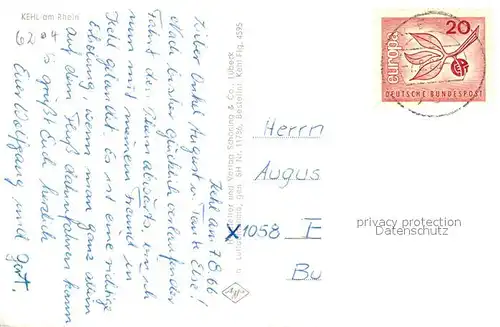 KEHL am Rhein
6204
Kehl am 7.8.66
Lieber Onkel August u. Tante Else!
Nach bisher glücklich verlaufender
Fahrt den Rhein abwärts, bin ich
nun mit meinem Freund in
Kehl gelandet. Es ist eine richtige
Erholung, wenn man ganz allein
auf dem Fluß dahinfahren kann
Es grüßt Euch herzlich
Euer Wolfgang und Gert.
Verlag Schöning & Co., Lübeck
gen. BH Nr. 11786, Bestellnr. Kehl Flg. 4595
europa
20
DEUTSCHE BUNDESPOST
Herrn
Augus
X1058 E
Bu
privacy protection
Dienstleister